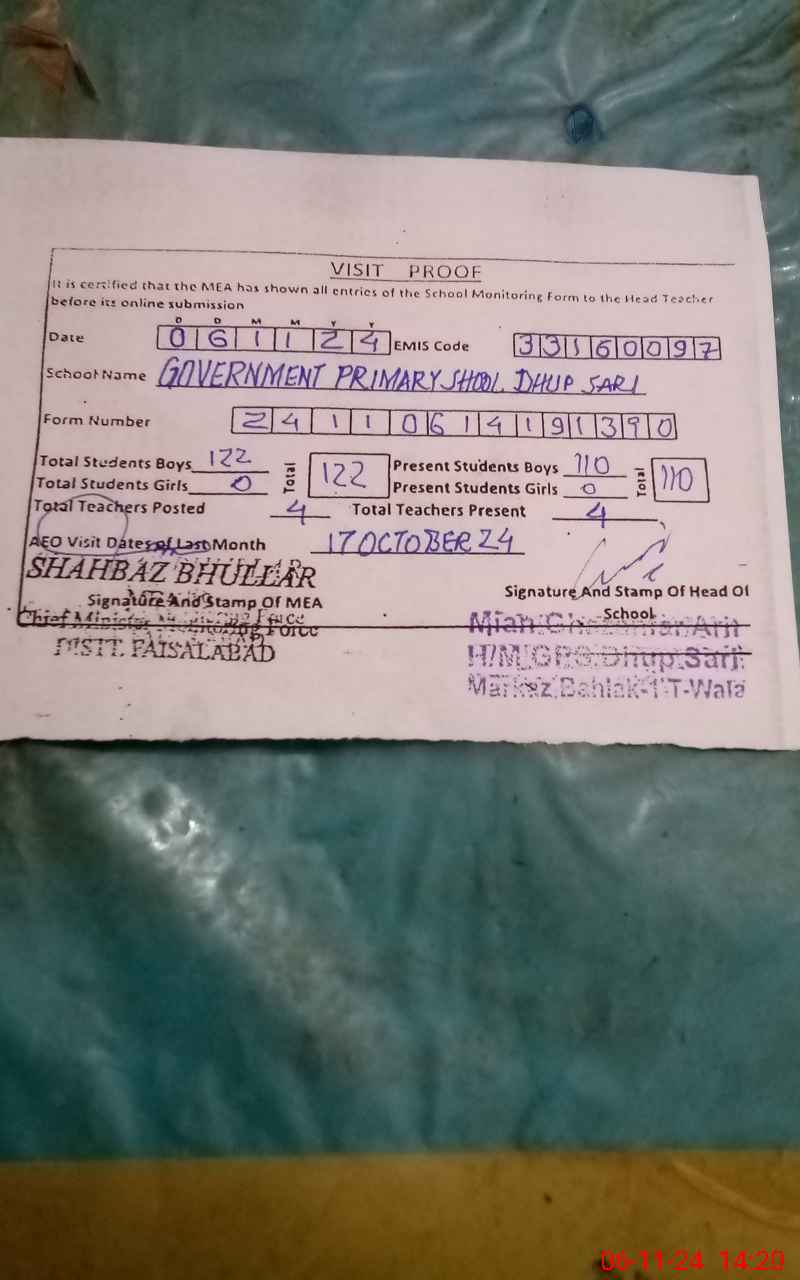 VISIT PROOF
It is certified that the MEA has shown all entries of the School Monitoring Form to the Head Teacher
before its online submission
D D M M Y Y
Date 0 6 1 1 2 4 EMIS Code 3 3 1 6 0 0 9 7
School Name GOVERNMENT PRIMARY SHOOL DHUP SARI
Form Number 2 4 1 1 0 6 1 4 1 9 1 3 9 0
Total Students Boys 122 Total 122 Present Students Boys 110 Total 110
Total Students Girls 0 Present Students Girls 0
Total Teachers Posted 4 Total Teachers Present 4
AEO Visit Dates of Last Month 17 OCTOBER 24
SHAHBAZ BHULLAR
Signature And Stamp Of MEA
Signature And Stamp Of Head Of
School
Chief Minister Force
Force
DISTT. FAISALABAD
Mian
H/M GPS Dhup Sari
Markaz Bahlak-1 T-Wala
06-11-24 14:20